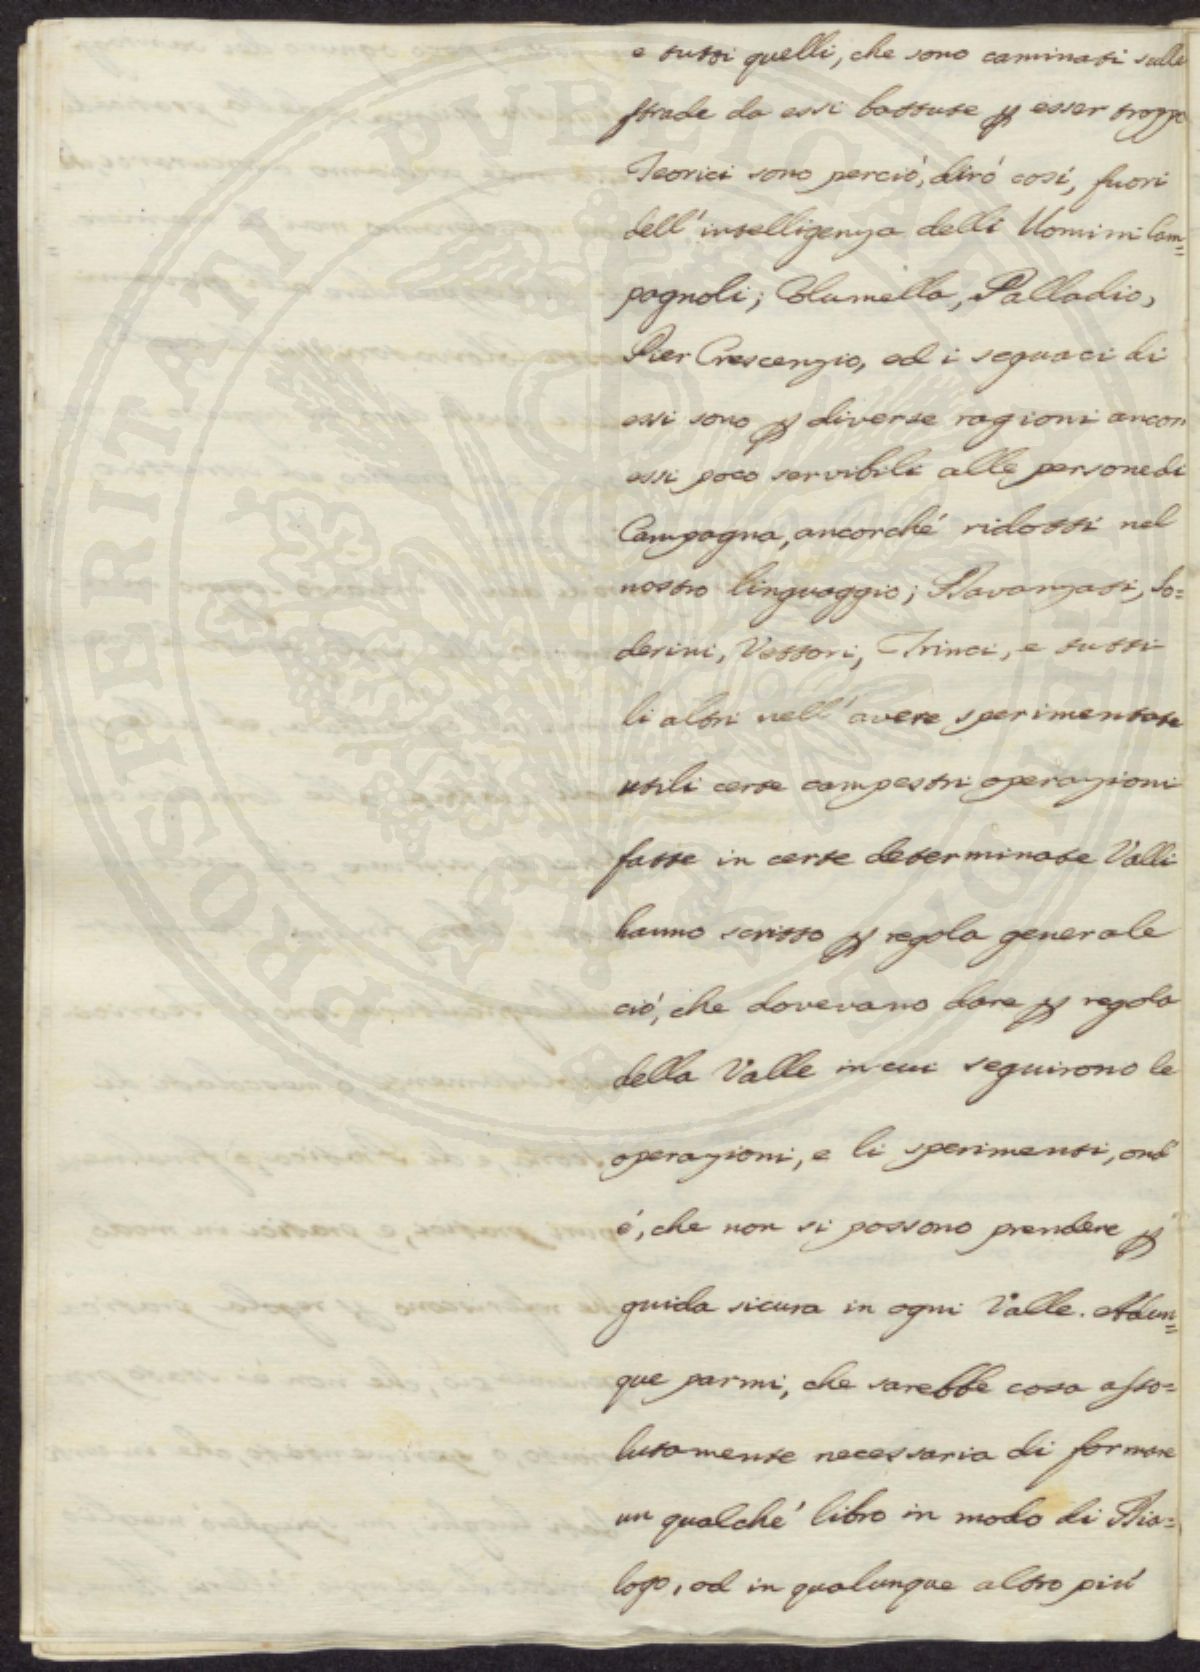 e tutti quelli, che sono caminati sulle
strade da essi battute ꝑ esser troppo
Teorici sono perciò, dirò così, fuori
dell'intelligenza delli Uomini Cam=
pagnoli; Columella, Palladio,
Pier Crescenzio, ed i seguaci di
essi sono ꝑ diverse ragioni ancor
essi poco servibili alle persone di
Campagna, ancorché ridotti nel
nostro linguaggio; Davanzati, So=
derini, Vettori, Trinci, e tutti
li altri nell'avere sperimentate
utili certe campestri operazioni
fatte in certe determinate Valli
hanno scritto ꝑ regola generale
ciò, che dovevano dare ꝑ regola
della Valle in cui seguirono le
operazioni, e li sperimenti, ond'
é, che non si possono prendere ꝑ
guida sicura in ogni Valle. Adun=
que parmi, che sarebbe cosa asso=
lutamente necessaria di formare
un qualché libro in modo di Dia=
logo, od in qualunque altro più
PUBLICAE
PROSPERITATI